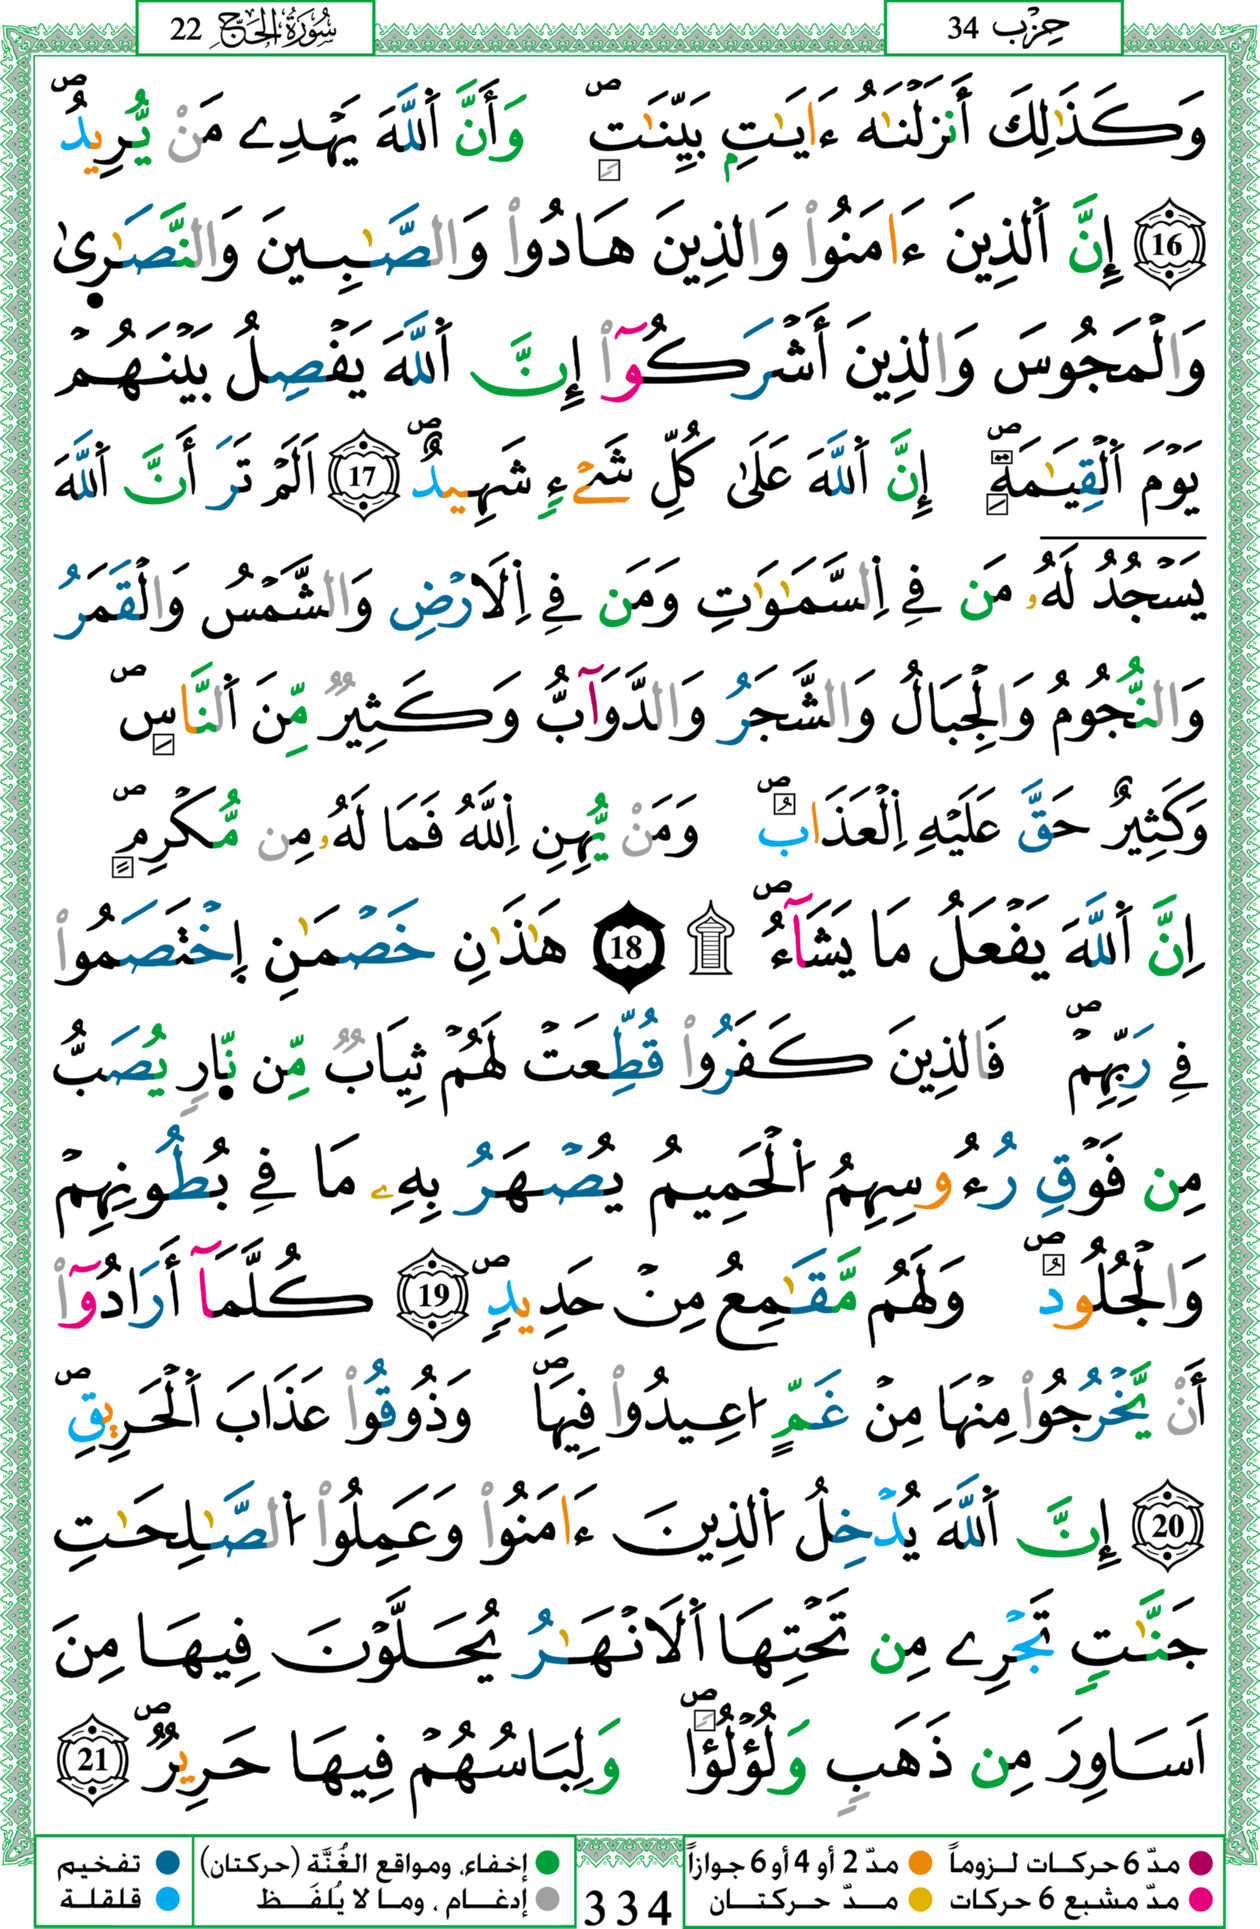 حِزْب 34
سُورَةُ الحَجّ 22
وَكَذَٰلِكَ أَنزَلْنَٰهُ ءَايَٰتِۢ بَيِّنَٰتٖ وَأَنَّ اَ۬للَّهَ يَهْدِے مَنْ يُّرِيدُ
16 إِنَّ اَ۬لذِينَ ءَامَنُواْ وَالذِينَ هَادُواْ وَالصَّٰبِينَ وَالنَّصَٰرِىٰ
وَالْمَجُوسَ وَالذِينَ أَشْرَكُوٓاْ إِنَّ اَ۬للَّهَ يَفْصِلُ بَيْنَهُمْ
يَوْمَ اَ۬لْقِيَٰمَةِ إِنَّ اَ۬للَّهَ عَلَىٰ كُلِّ شَےْءٖ شَهِيدٌ 17 اَلَمْ تَرَ أَنَّ اَ۬للَّهَ
يَسْجُدُ لَهُۥ مَن فِے اِ۬لسَّمَٰوَٰتِ وَمَن فِے اِ۬لَارْضِ وَالشَّمْسُ وَالْقَمَرُ
وَالنُّجُومُ وَالْجِبَالُ وَالشَّجَرُ وَالدَّوَآبُّ وَكَثِيرٞ مِّنَ اَ۬لنَّاسِ
وَكَثِيرٌ حَقَّ عَلَيْهِ اِ۬لْعَذَابُ وَمَنْ يُّهِنِ اِ۬للَّهُ فَمَا لَهُۥ مِن مُّكْرِمٍ
اِنَّ اَ۬للَّهَ يَفْعَلُ مَا يَشَآءُ 18 هَٰذَٰنِ خَصْمَٰنِ اِ۪خْتَصَمُواْ
فِے رَبِّهِمْ فَالذِينَ كَفَرُواْ قُطِّعَتْ لَهُمْ ثِيَابٞ مِّن نّ۪ارٖ يُصَبُّ
مِن فَوْقِ رُءُوسِهِمُ اُ۬لْحَمِيمُ يُصْهَرُ بِهِۦ مَا فِے بُطُونِهِمْ
وَالْجُلُودُ وَلَهُم مَّقَٰمِعُ مِنْ حَدِيدٍ 19 كُلَّمَآ أَرَادُوٓاْ
أَنْ يَّخْرُجُواْ مِنْهَا مِنْ غَمٍّ ا۟عِيدُواْ فِيهَا وَذُوقُواْ عَذَابَ اَ۬لْحَرِيقِ
20 إِنَّ اَ۬للَّهَ يُدْخِلُ اُ۬لذِينَ ءَامَنُواْ وَعَمِلُواْ اُ۬لصَّٰلِحَٰتِ
جَنَّٰتٖ تَجْرِے مِن تَحْتِهَا اَ۬لَانْهَٰرُ يُحَلَّوْنَ فِيهَا مِنَ
اَسَاوِرَ مِن ذَهَبٖ وَلُؤْلُؤاٗ وَلِبَاسُهُمْ فِيهَا حَرِيرٞ 21
مدّ 6 حركات لـزوماً مدّ 2 أو 4 أو 6 جوازاً
مدّ مشبع 6 حركات مـدّ حركتـان
334
إخفاء، ومواقع الغُنَّة (حركتان) تفخيم
إدغـام ، ومـا لا يُلفَـظ قلقلة